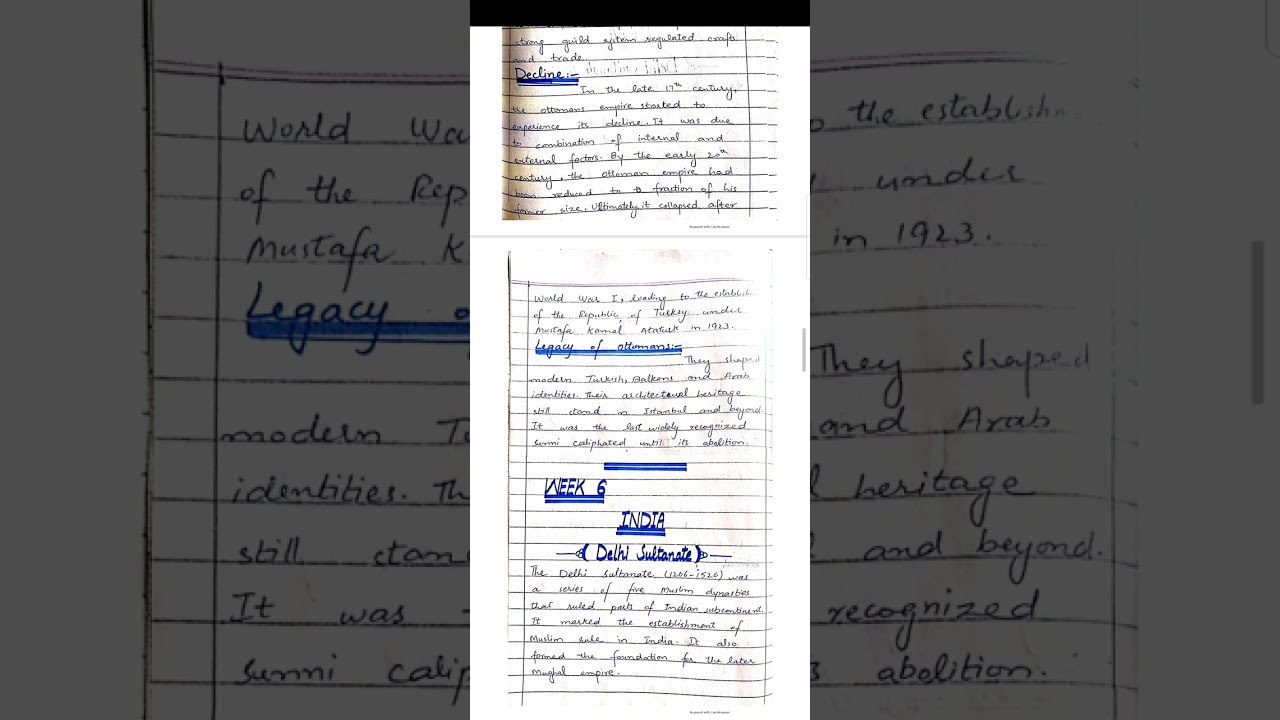 strong guild system regulated craft
and trade.
Decline:-
In the late 17th century,
the ottomans empire started to
experience its decline. It was due
to combination of internal and
external factors. By the early 20th
century, the ottoman empire had
been reduced to fraction of his
former size. Ultimately it collapsed after
World War I, leading to the establish
of the Republic of Turkey under
Mustafa Kamal Ataturk in 1923.
Legacy of ottomans:-
They shaped
modern Turkish, Balkans and Arab
identities. Their architectural heritage
still stand in Istanbul and beyond.
It was the last widely recognized
sunni caliphated until its abolition.
WEEK 6
INDIA
(Delhi Sultanate)
The Delhi sultanate (1206-1526) was
a series of five muslim dynasties
that ruled parts of Indian subcontinent.
It marked the establishment of
Muslim rule in India. It also
formed the foundation for the later
mughal empire.